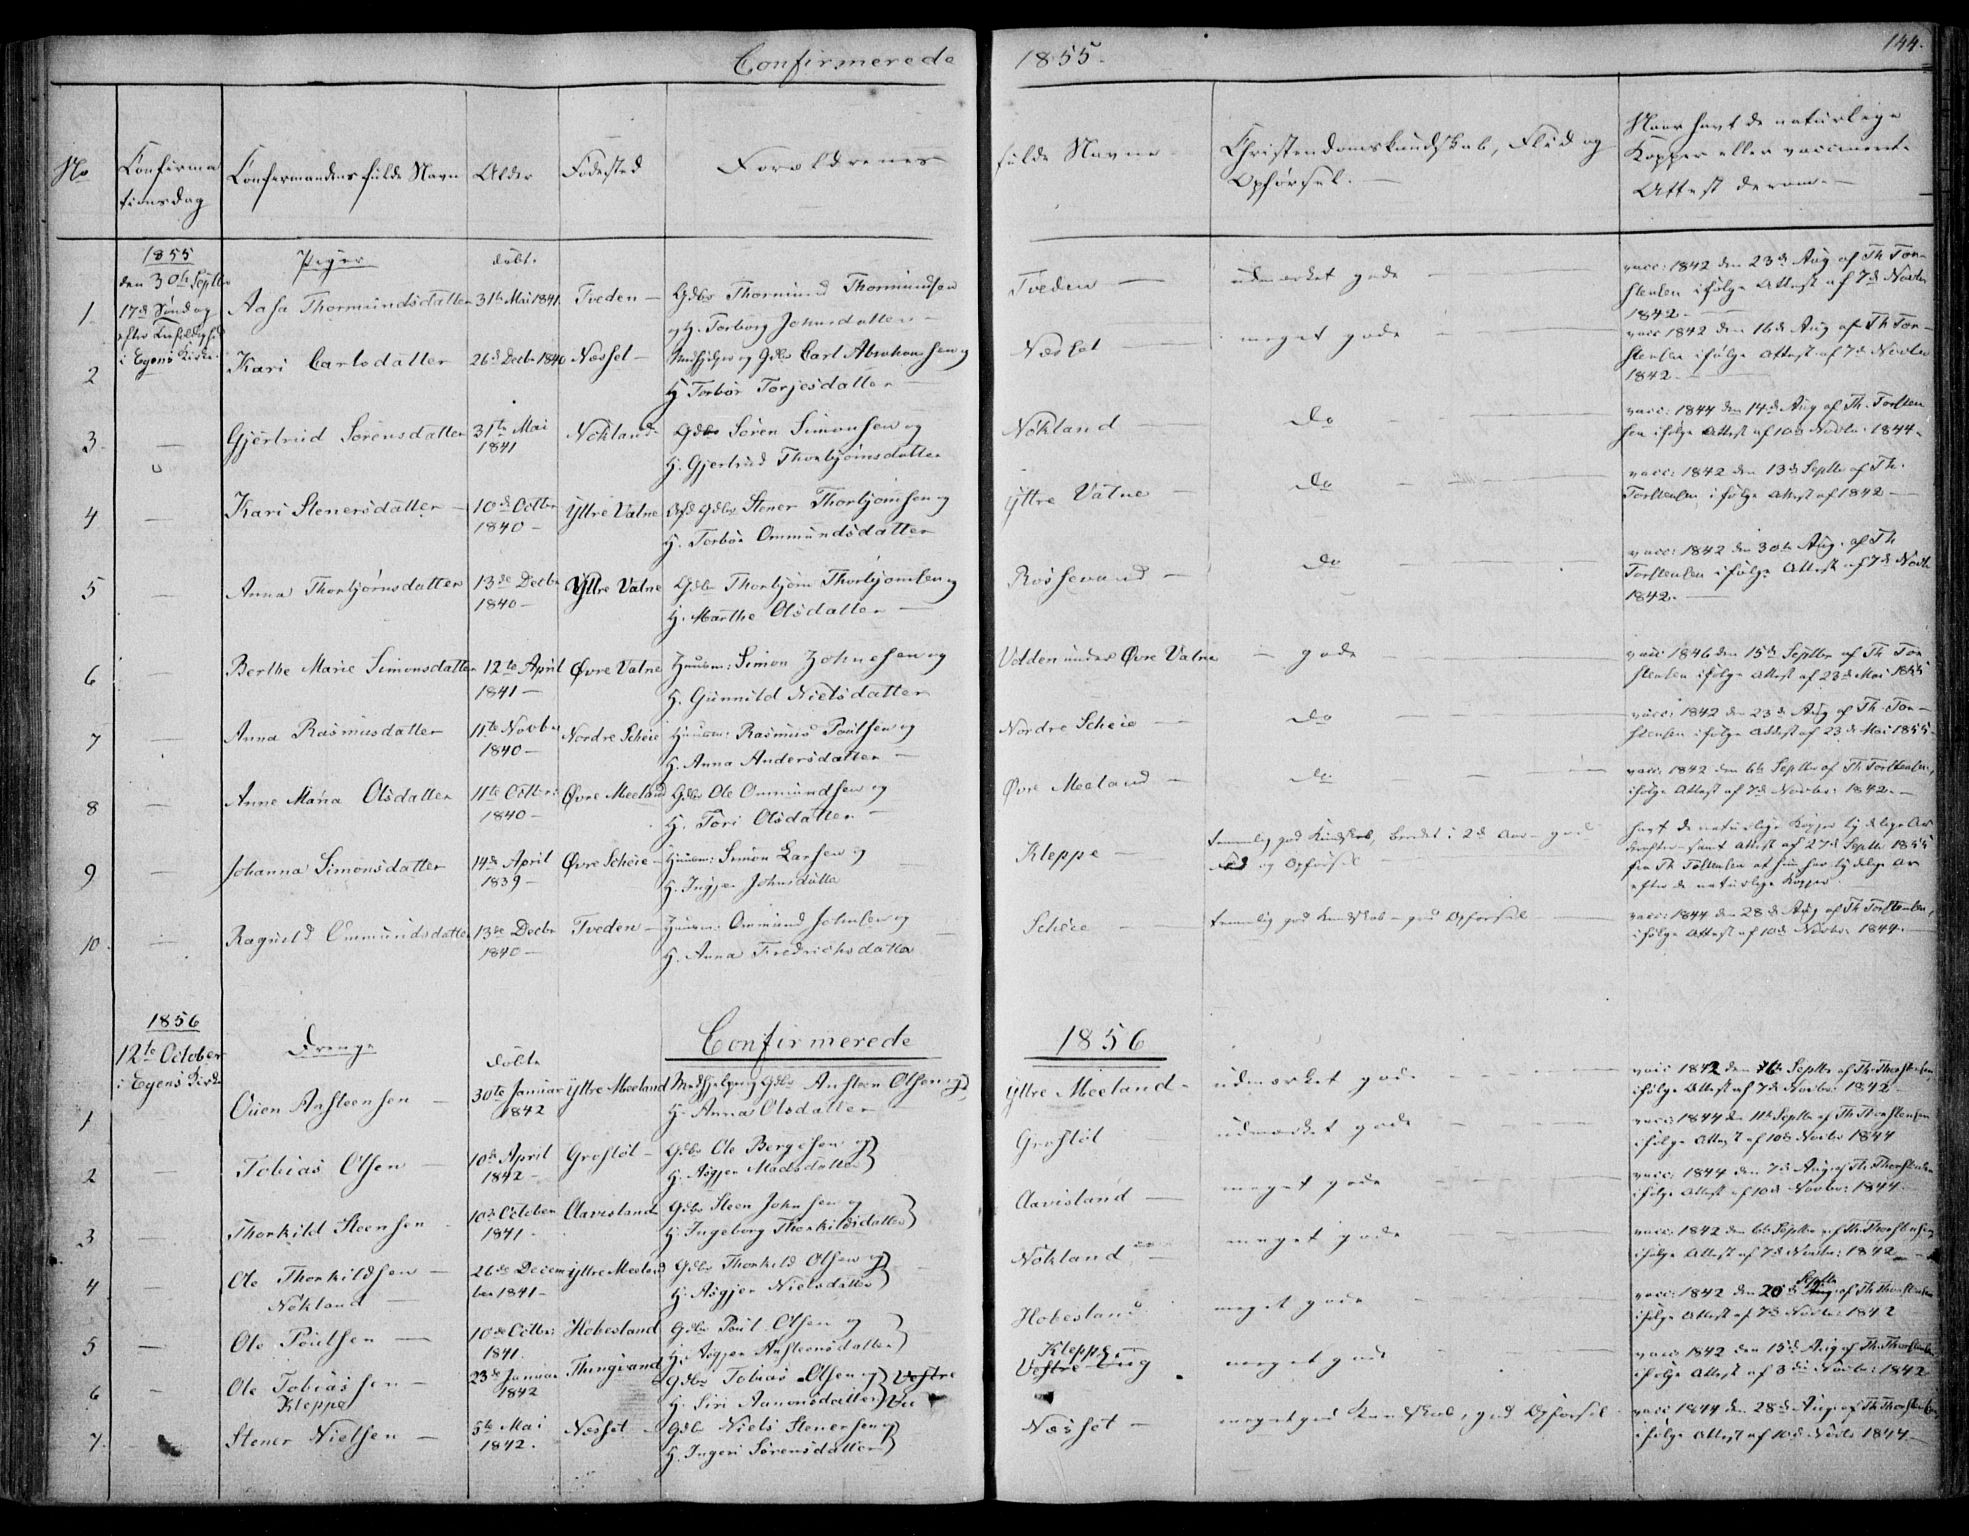 Confirmerede 1855.
144.
No
Confirma
tionsdag
Confirmandens fulde Navn
Alder
Fødested
Forældrenes
fulde Navne
Christendomskundskab, Flid og
Opførsel. —
Naar havt de naturlige
Kopper eller vaccineret.
Attest derom. —
1855
den 30te Septbr
17de Søndag
efter
i Egens Kirke
Piger
døbt.
1. Aasa Thormundsdatter 31te Mai 1841. Tveden — Gdbr Thormund Thormundsen Tveden — udmærket gode — vacc: 1842 den 23de Aug af Th Tor-
og H. Torborg Johnsdatter — stensen ifølge Attest af 7de Novbr
1842. —
2 Kari Carlsdatter 26de Decbr 1840 Næsset — Medhjelper og Gdbr Carl Abrahamsen og Næsset — meget gode — vacc 1842 den 16de Aug af Th Tor-
H. Torbor Torjesdatter — stensen ifølge Attest af 7de Novbr
1842. —
3. — Gjertrud Sørensdatter 31te Mai Nøkland Gdbr Søren Simonsen og Nøkland — Do — vacc: 1844 den 14de Aug af Th. Torsten
1841 H. Gjertrud Thorbjørnsdatter sen ifølge Attest af 10de Novbr: 1844.
4 — Kari Stenersdatter — 10de Octbr Yttre Vatne Gdbr Stener Thorbjørnsen og Yttre Vatne — Do — vacc: 1842 den 13de Septbr af Th.
1840 — H. Torbor Ommundsdatter Torstensen ifølge Attest af 1842 —
5 — Anna Thorbjørnsdatter 13de Decbr Yttre Vatne Gdbr Thorbjørn Thorbjørnsen og Rossevand — Do — vacc: 1842 den 30te Aug. af Th
1840 — H. Marthe Olsdatter — Torstensen ifølge Attest af 7de Novbr
1842. —
6 — Berthe Marie Simonsdatter 12te April Øvre Vatne Huusm: Simon Johnesen og Volden under Øvre Vatne — gode — vacc 1846 den 15de Septbr af Th Tor
1841 — H. Gunnild Nielsdatter stensen ifølge Attest af 23de Mai 1855
7 — Anna Rasmusdatter 11te Novbr Nordre Scheie Huusm: Rasmus Poulsen og Nordre Scheie — Do — vacc: 1842 den 23de Aug af Th. Tor-
1840 — H. Anna Andersdatter — stensen ifølge Attest af 23de Mai 1855.
8 — Anne Maria Olsdatter 11te Octbr: Øvre Meeland Gdbr Ole Ommundsen og Øvre Meeland — Do. — vacc. 1842 den 6te Septbr af Th Torstensen,
1840 — H. Tori Olsdatter — ifølge Attest af 7de Novbr: 1842. —
9 — Johanna Simonsdatter 14de April Øvre Scheie — Huusm: Simon Larsen og Kleppe — temmelig god Kundskab, i 2de Aar — god havt de naturlige Kopper tydelige Ar
1839 — H. Ingjer Johnsdatter og Opførsel derefter — samt Attest af 27de Septbr 1855
fra Th Tostensen at hun har tydelige Ar
efter de naturlige Kopper.
10. — Ragnild Ommundsdatter 13de Decbr Tveden — Huusm: Ommund Johnsen og Scheie — temmelig god Kundskab — god Opførsel — vacc: 1844 den 28de Aug af Th Torstensen,
1840 — H. Anna Fredrichsdatter ifølge Attest af 10de Novbr: 1844. —
1856
12te October
i Egens Kirke
Drenge
døbte
Confirmerede 1856
1 Ouen Ansteensen — 30te Januar Yttre Meeland Medhjelper og Gdbr Ansteen Olsen og Yttre Meeland — udmærket gode — vacc 1842 den Septbr af Th. Thorstensen,
1842 H. Anna Olsdatter — ifølge Attest af 7de Novbr: 1842 —
2 — Tobias Olsen — 10de April Grostøl — Gdbr Ole Bergesen og Grostøl — udmærket gode — vacc: 1844 den 11te Septbr af Th Thorstensen
1842 — H. Asgjer Madsdatter ifølge Attest af 10de Novbr 1844
3 — Thorkild Steensen 10de October Clavesland Gdbr Steen Johnsen og Clavisland — meget gode — vacc: 1844 den 7de Aug af Th. Thorstensen
1841. H. Ingeborg Thorkildsdatter ifølge Attest af 10de Novbr: 1844.
4 — Ole Thorkildsen — 26de Decem Yttre Meeland Gdbr Thorkild Olsen og Nøkland — meget gode — vacc: 1842 den 6te Septbr af Th. Thorstensen
Nøkland — ber 1841 — H. Asgjer Nielsdatter ifølge Attest af 7de Novbr: 1842 —
5 — Ole Poulsen — 10de Octbr: Hobesland Gdbr Poul Olsen og Hobesland meget gode — vacc: 1842 den 20de Septbr Aug. af Th Thorstensen
1841. H. Asgjer Ansteensdatter ifølge Attest af 7de Novbr: 1842
6 — Ole Tobiassen — 23de Januar Thingvand Gdbr Tobias Olsen og Vestre Kleppe — Vestre Lug meget gode — vacc: 1842 den 15de Aug af Th. Thorstensen
Kleppe 1842 H. Siri Aanonsdatter ifølge Attest af 3de Novbr: 1842
7. Stener Nielsen — 5te Mai Næsset Gdbr Niels Stenersen og Næsset — meget god Kundskab, god Opførsel — vacc: 1844 den 28de Aug: af Th Thorstensen
1842. H. Ingeri Sørensdatter ifølge Attest af 10de Novbr 1844 —